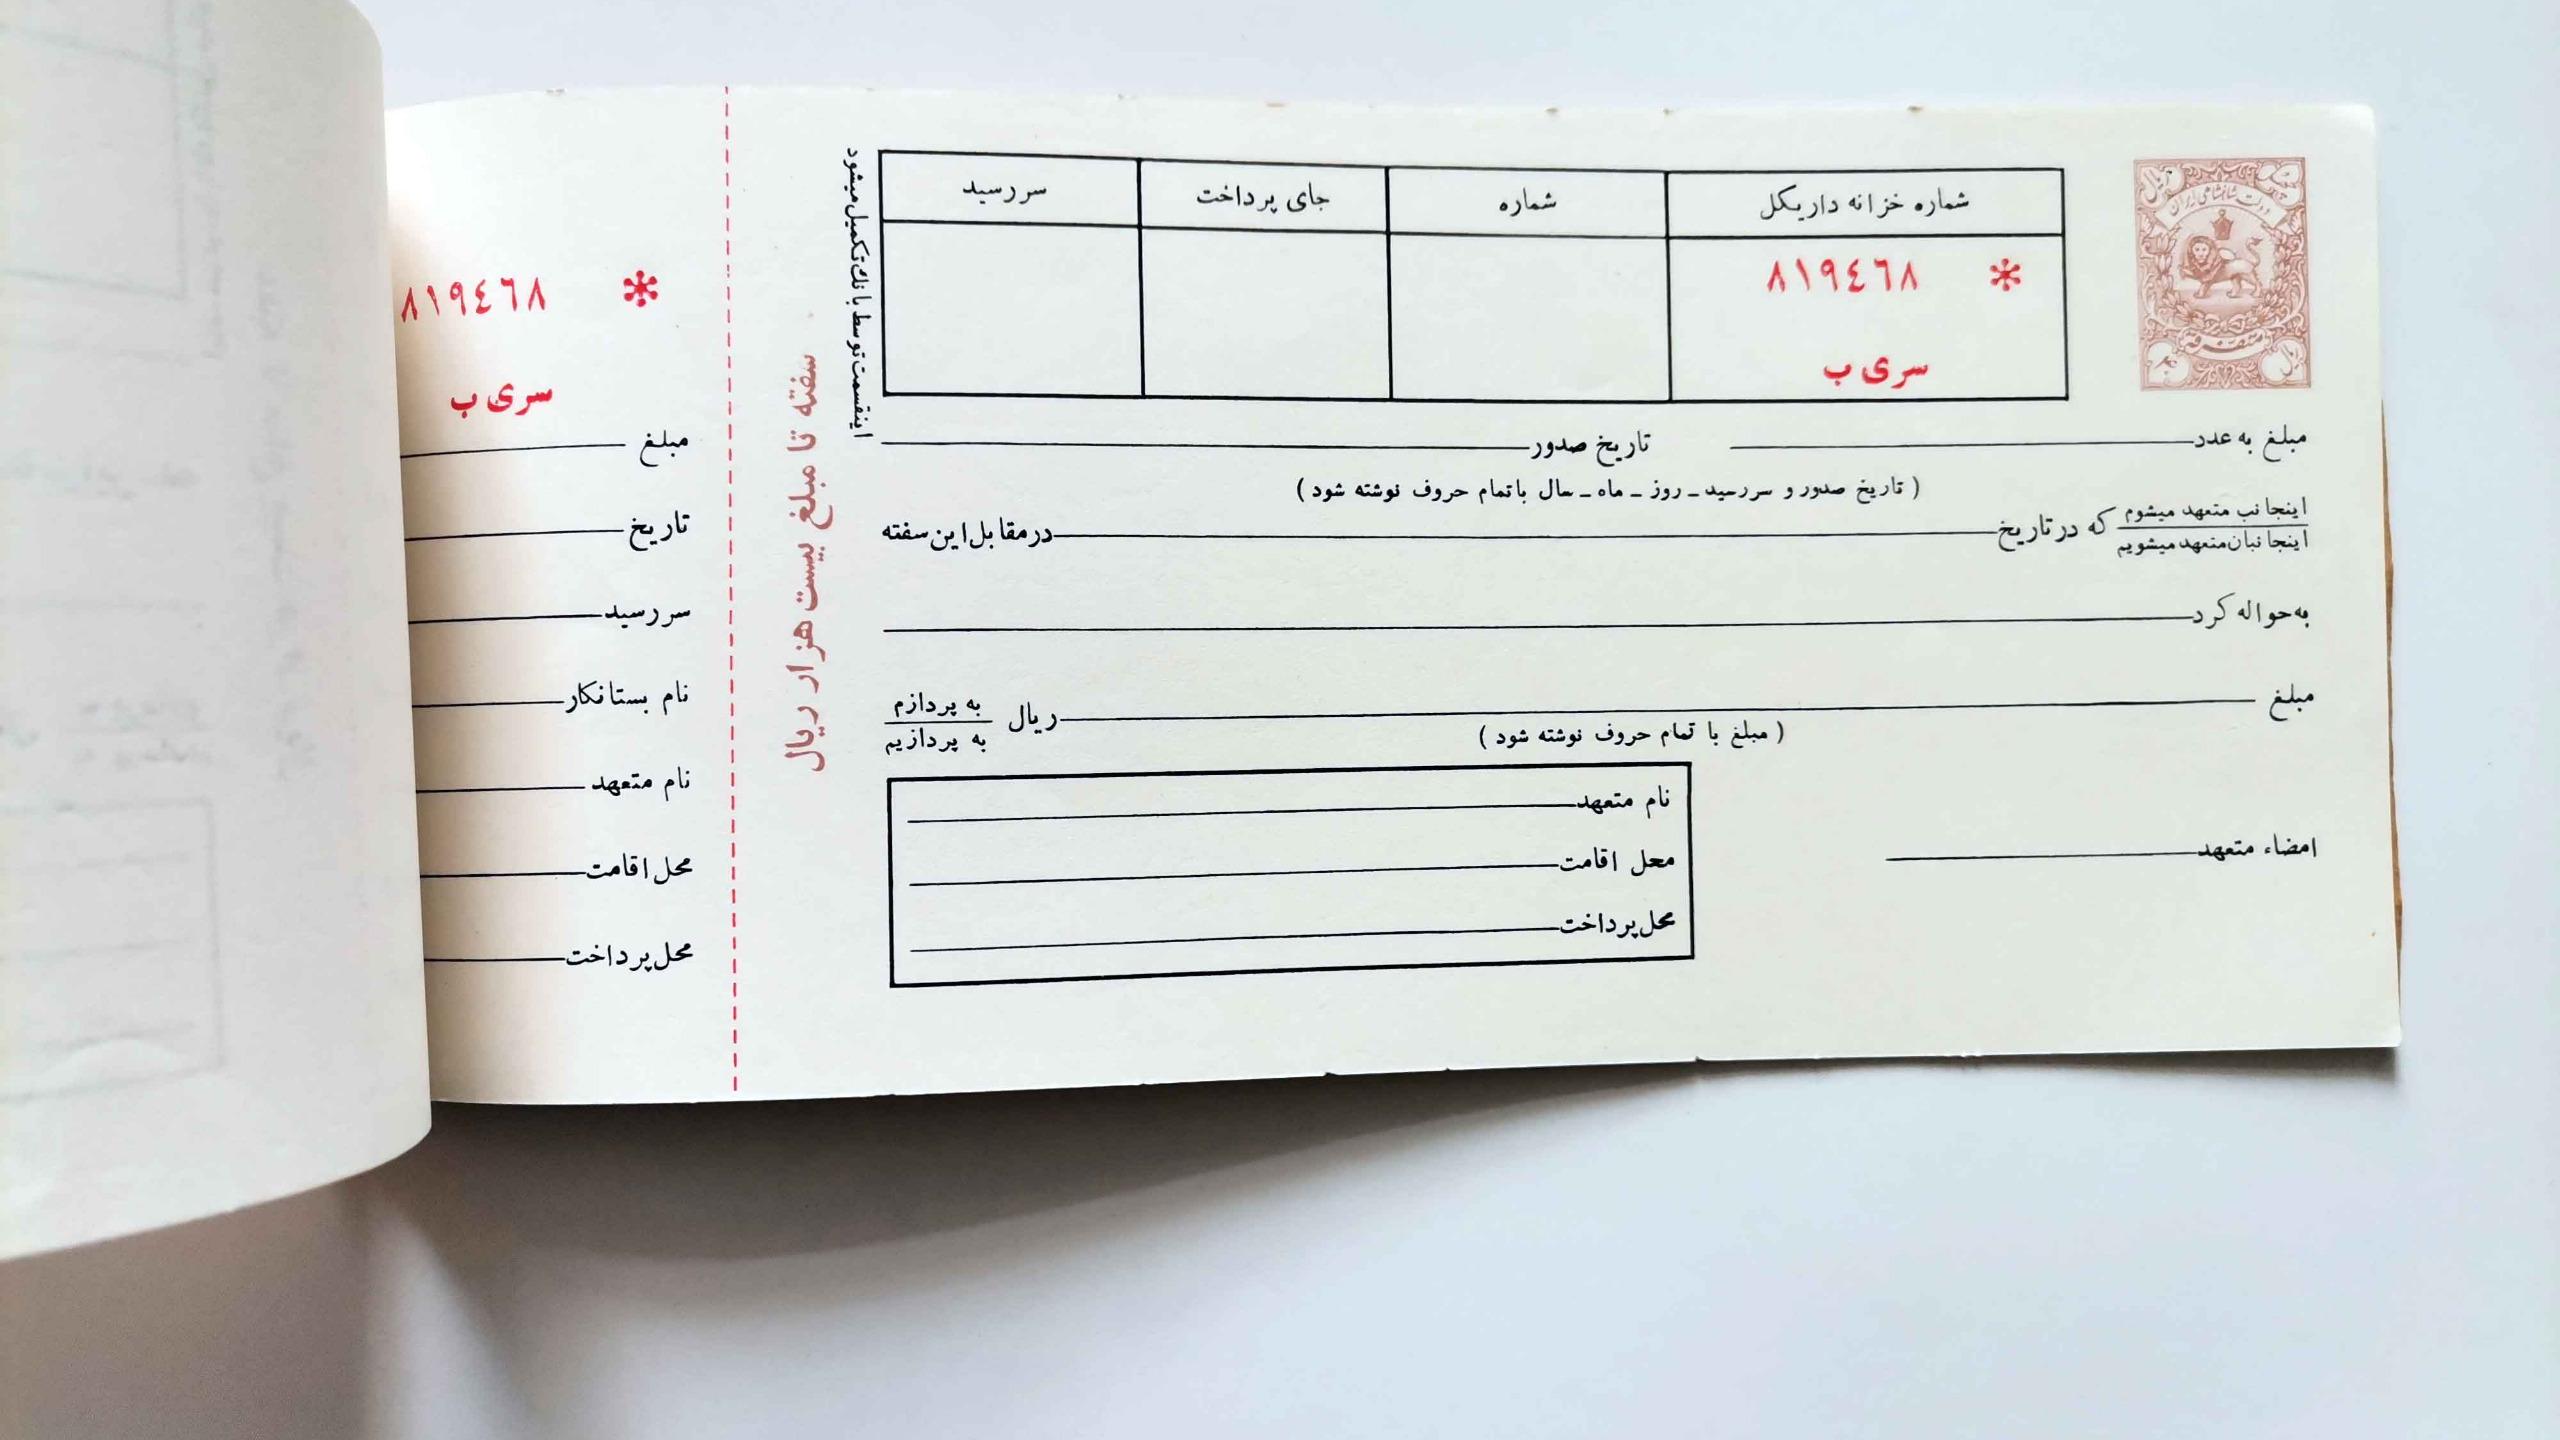 شماره خزانه داریکل
شماره
جای پرداخت
سررسید
* ۸۱۹٤٦۸
سری ب
اینقسمت توسط بانك تکمیل میشود
دولت شاهنشاهی ایران
متفرقه
ریال
مبلغ به عدد
تاریخ صدور
( تاریخ صدور و سررسید ـ روز ـ ماه ـ سال باتمام حروف نوشته شود )
اینجانب متعهد میشوم
اینجانبان متعهد میشویم
که در تاریخ
در مقابل این سفته
به حواله کرد
مبلغ
ریال
به پردازم
به پردازیم
( مبلغ با تمام حروف نوشته شود )
نام متعهد
محل اقامت
محل پرداخت
امضاء متعهد
سفته تا مبلغ بیست هزار ریال
* ۸۱۹٤٦۸
سری ب
مبلغ
تاریخ
سررسید
نام بستانکار
نام متعهد
محل اقامت
محل پرداخت